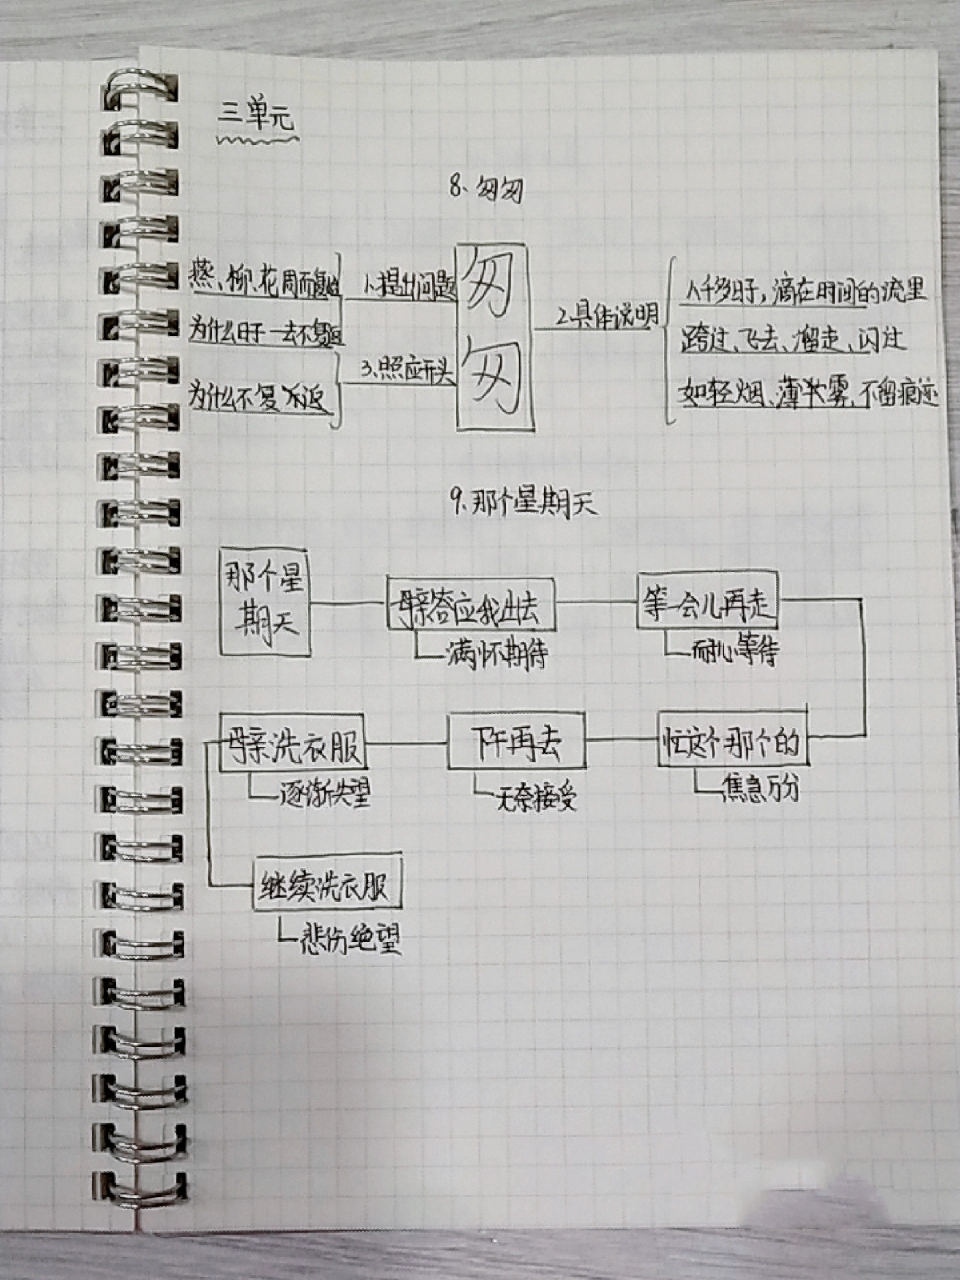 三单元
8、匆匆
燕、柳、花周而复始
为什么日子一去不复返
1.提出问题
匆匆
2.具体说明
八千多日子,滴在时间的流里
跨过、飞去、溜走、闪过
如轻烟、薄雾、不留痕迹
3.照应开头
为什么不复返
9.那个星期天
那个星
期天
母亲答应我出去
满怀期待
等一会儿再走
耐心等待
忙这个那个的
焦急万分
下午再去
无奈接受
母亲洗衣服
逐渐失望
继续洗衣服
悲伤绝望